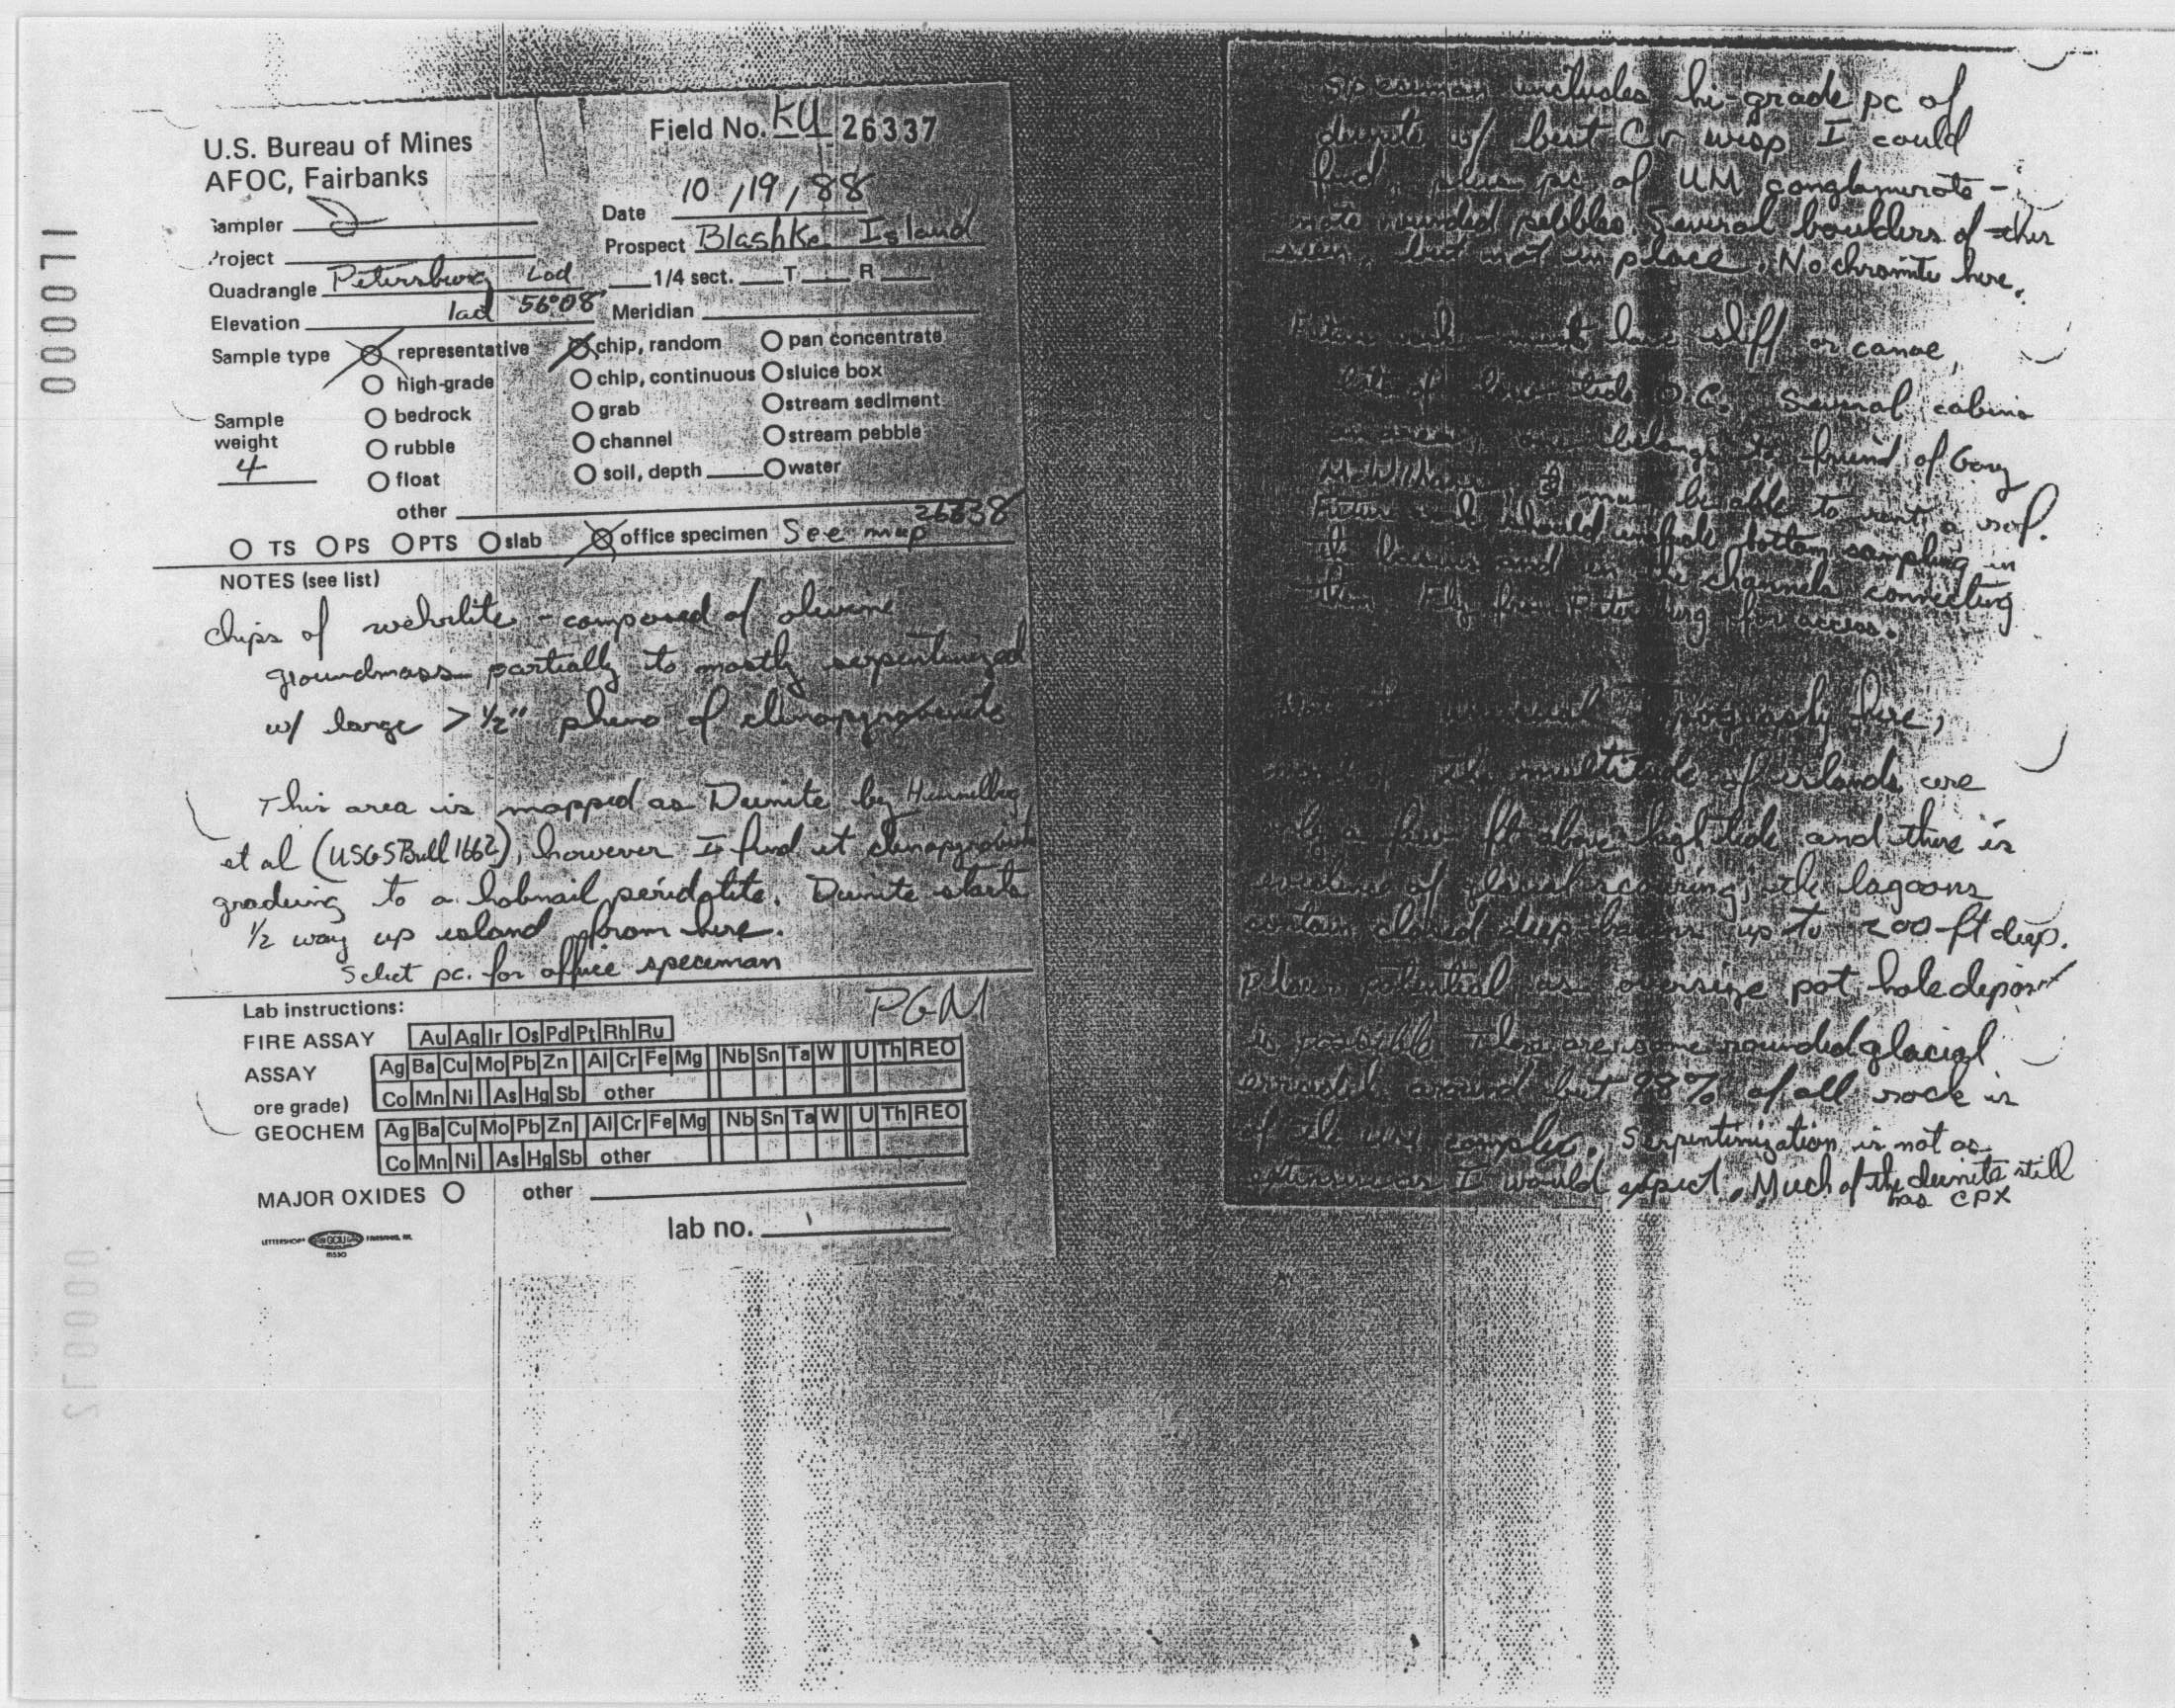 U.S. Bureau of Mines
AFOC, Fairbanks
Field No. KU 26337
Sampler
Date 10/19/88
Project
Prospect Blashke Island
Quadrangle Petersburg Lod
1/4 sect. T R
Elevation lad 56°08'
Meridian
Sample type representative chip, random pan concentrate
high-grade chip, continuous sluice box
Sample weight 4
bedrock grab stream sediment
rubble channel stream pebble
float soil, depth water
other
TS PS PTS slab office specimen See map 26338
NOTES (see list)
chips of wehrlite - composed of olivine
groundmass partially to mostly serpentinized
w/ large > 1/2" pheno of clinopyroxenite
This area is mapped as Dunite by Himmelberg
et al (USGS Bull 1662), however I find it clinopyroxenite
grading to a hobnail peridotite. Dunite starts
1/2 way up island from here.
Select pc. for office speciman
Lab instructions: PGM
FIRE ASSAY Au Ag Ir Os Pd Pt Rh Ru
ASSAY Ag Ba Cu Mo Pb Zn Al Cr Fe Mg Nb Sn Ta W U Th REO
ore grade) Co Mn Ni As Hg Sb other
GEOCHEM Ag Ba Cu Mo Pb Zn Al Cr Fe Mg Nb Sn Ta W U Th REO
Co Mn Ni As Hg Sb other
MAJOR OXIDES other
lab no.
Speciman includes hi-grade pc of
dunite w/ best Cr wisp I could
find, plus pc of UM conglomerate -
note rounded pebbles. Several boulders of this
seen, but not in place. No chromite here.
work - must have skiff or canoe,
lot of low tide O.C. Several cabins
in area, one belongs to friend of Gary
McWilliams, & may be able to rent a
Future work should include bottom sampling in
the basins and in the channels connecting
them. Fly from Petersburg for access.
unusual topography here,
most of the multitude of islands are
only a few ft above high tide and there is
evidence of glacial scouring, the lagoons
contain closed deep basins up to 200-ft deep.
Placer potential as oversize pot hole deposit
is possible. There are some rounded glacial
erratics around but 98% of all rock is
of the UM complex. Serpentinization is not as
extensive as I would expect. Much of the dunite still
has CPX
170000
000072